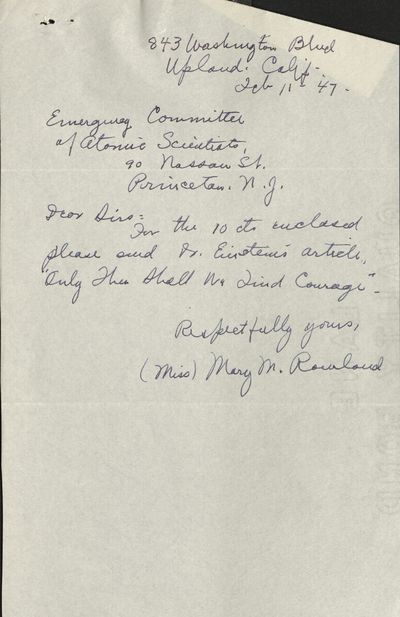 843 Washington Blvd
Upland. Calif.
Feb 11 - 47 -
Emergency Committee
of Atomic Scientists,
90 Nassau St.
Princeton. N. J.
Dear Sirs:
For the 10 cts enclosed
please send Dr. Einstein's article,
"Only Then Shall We Find Courage" -
Respectfully yours,
(Miss) Mary M. Rowland